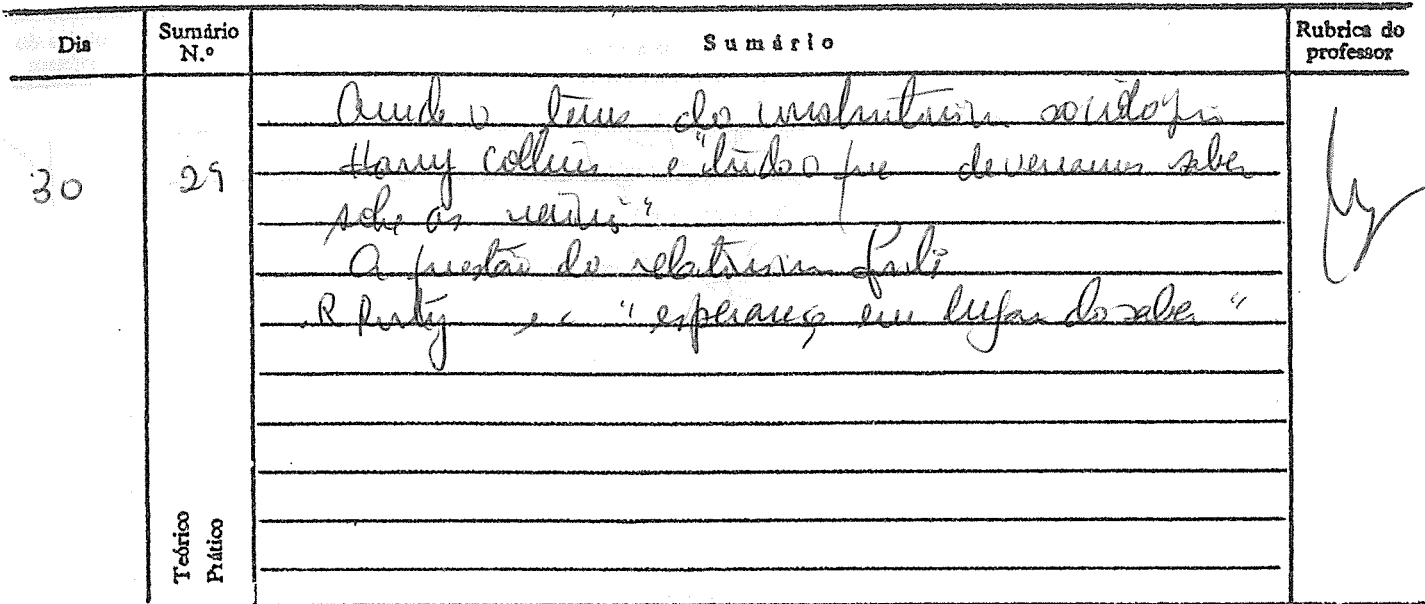 Dia
Sumário N.º
Sumário
Rubrica do professor
30
29
Ainda o tema do construtivismo sociológico
Harry Collins e "tudo o que deveríamos saber
sobre as ciências"
A questão do relativismo
R Rorty e a "esperança em lugar do saber"
Teórico
Prático